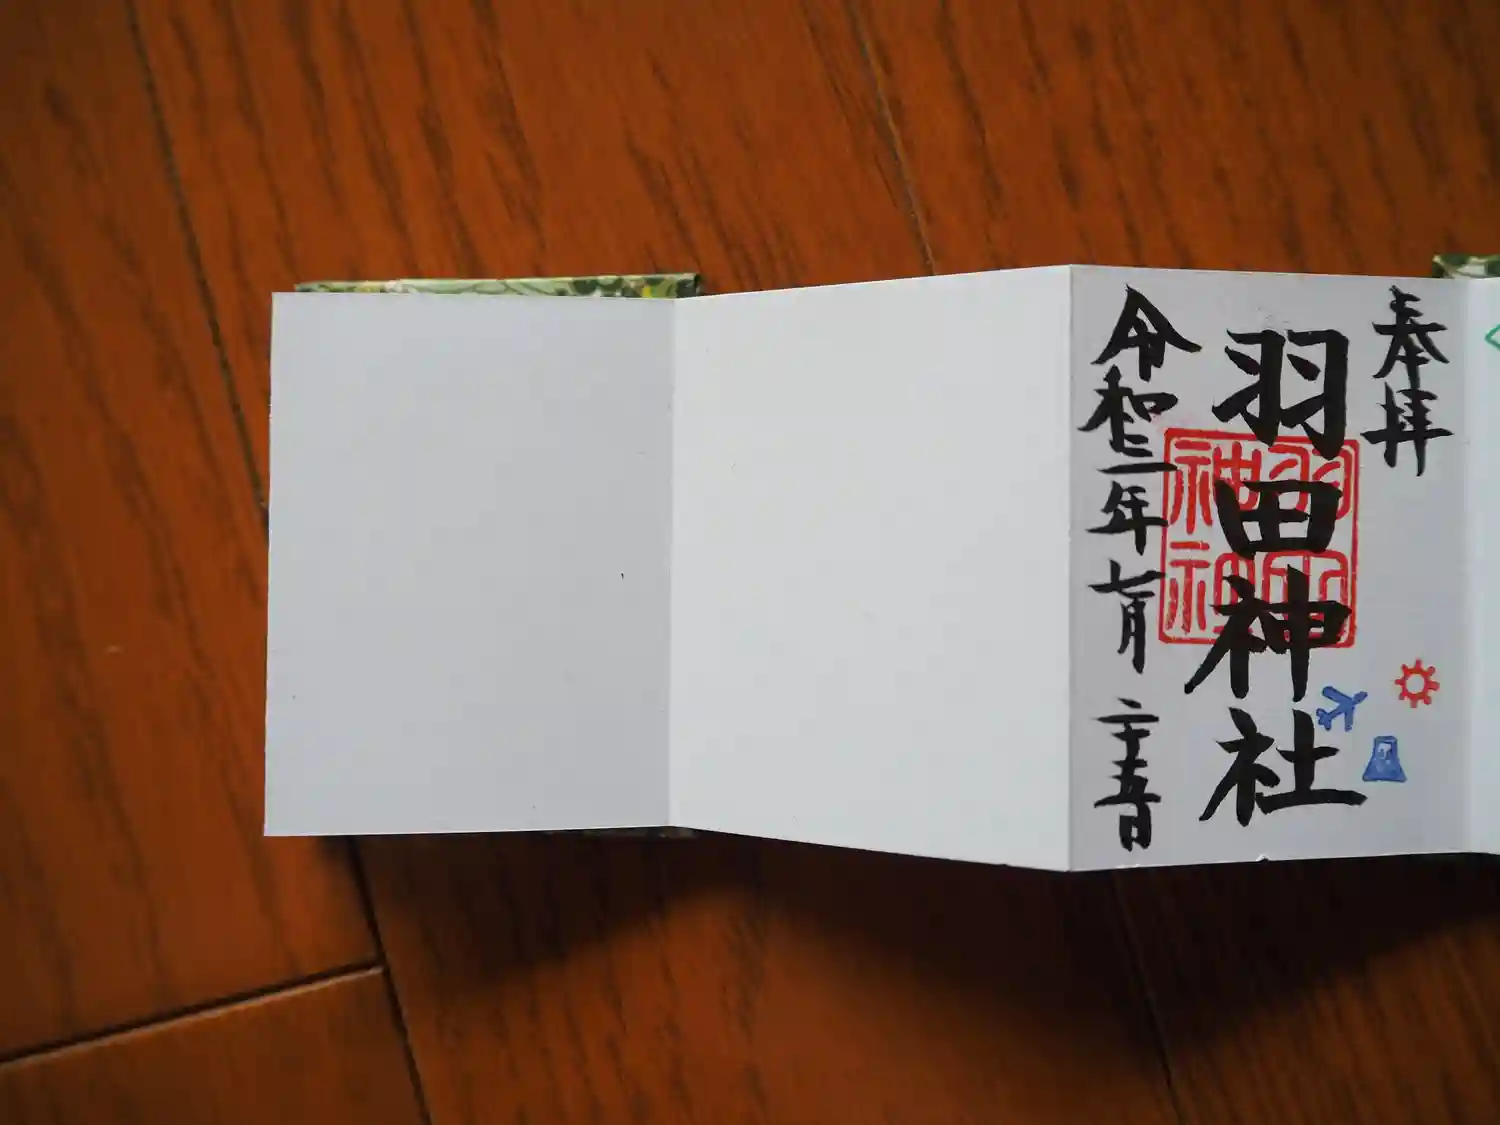 奉拝
羽田神社
令和二年七月二十五日
羽田
神社